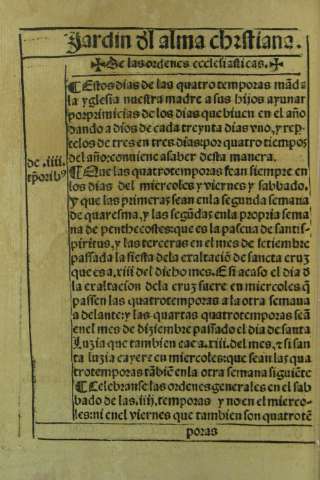 Jardin dl alma chrstiana.
✠De las ordenes ecclesiasticas.✠
¶Estos dias de las quatro temporas mãd̃a
la yglesia nuestra madre a sus hijos ayunar
por primicias de los dias que biuen en el año
dando a dios de cada treynta dias vno, y rep̃
telos de tres en tres dias: por quatro tiempos
del año: conuiene a saber desta manera.
de .iiii.
tp̃orib⁹
¶Que las quatro temporas sean siempre en
los dias del miercoles y viernes y sabbado.
y que las primeras sean en la segunda semana
de quaresma, y las segũdas en la propria sema
na de penthecostes: que es la pascua de santis-
piritus, y las terceras en el mes de setiembre
passada la fiesta de la exaltaciõ de sancta cruz
que es a .xiii. del dicho mes. E si acaso el dia d̃
la exaltacion de la cruz fuere en miercoles q̃
passen las quatro temporas a la otra semana
adelante: y las quartas quatro temporas seã
en el mes de diziembre passado el dia de santa
Luzia que tambien cae a .xiii. del mes, & si san
ta luzia cayere en miercoles: que sean las qua
tro temporas tãbiẽ en la otra semana siguiẽte
¶Celebranse las ordenes generales en el sab
bado de las .iiij. temporas y no en el mierco-
les: ni en el viernes que tambien son quatro tẽ
poras